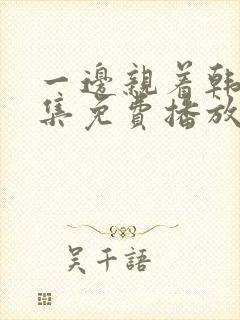 一邊親着韩
集免費播放
吴千語